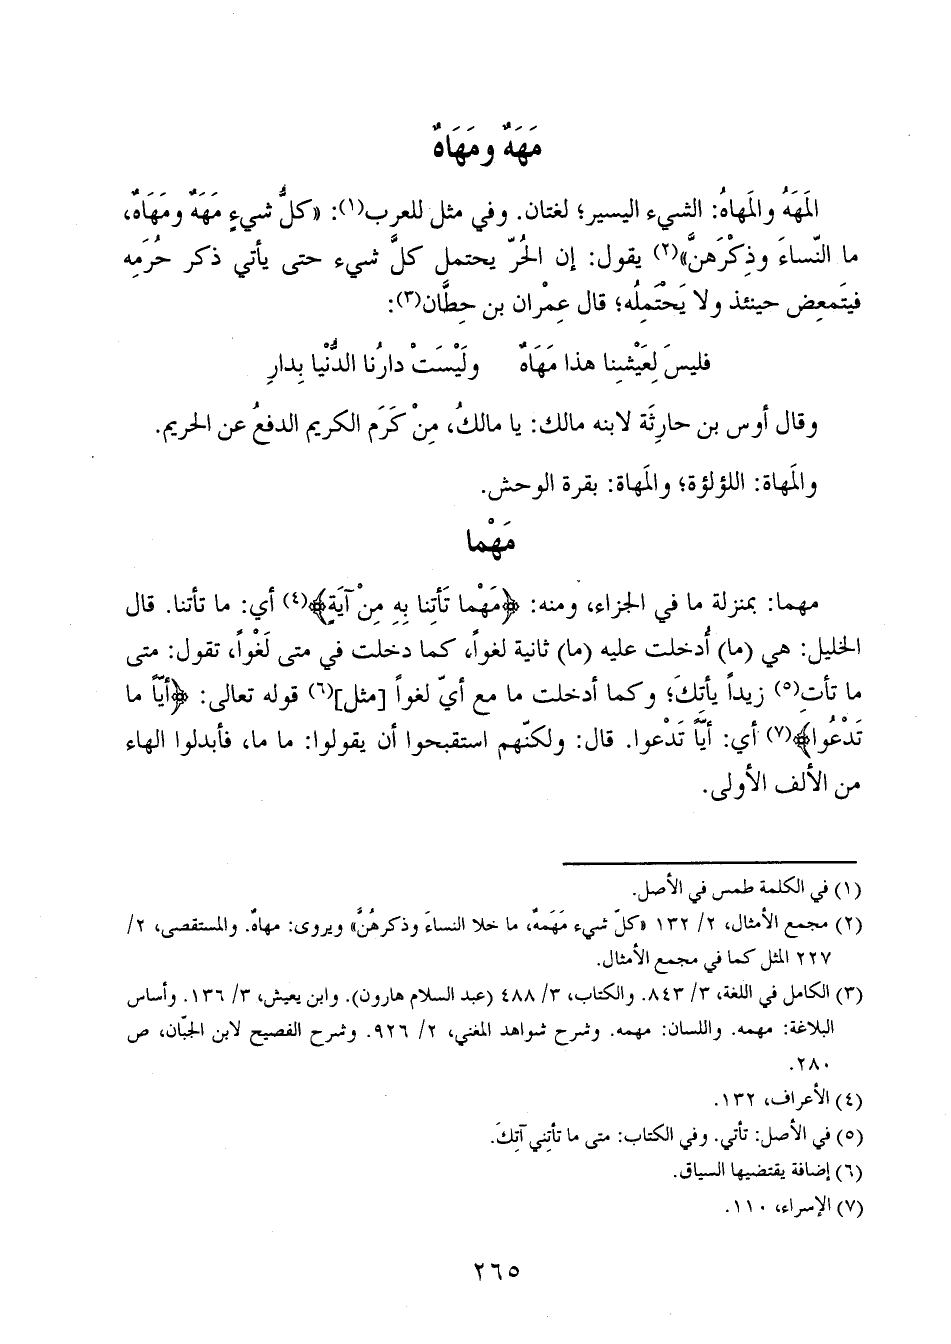 مَهَهٌ ومَهَاهٌ
المَهَهُ والمَهاهُ: الشيء اليسير؛ لغتان. وفي مثل للعرب(١): «كلُّ شيءٍ مَهَهٌ ومَهَاهٌ،
ما النّساءَ وذِكْرَهنَّ»(٢) يقول: إن الحُرّ يحتمل كلَّ شيء حتى يأتي ذكر حُرَمِه
فيتَمعِض حينئذ ولا يَحْتَمِلُه؛ قال عِمْران بن حطَّان(٣):
فليسَ لِعَيْشِنا هذا مَهَاهٌ ولَيْسَتْ دارُنا الدُّنْيا بِدارِ
وقال أوس بن حارِثَة لابنه مالك: يا مالكُ، مِنْ كَرَم الكريم الدفعُ عن الحريم.
والمَهاة: اللؤلؤة؛ والمَهاة: بقرة الوحش.
مَهْما
مهما: بمنزلة ما في الجزاء، ومنه: ﴿مَهْما تَأتِنا بِهِ مِنْ آيَةٍ﴾(٤) أي: ما تأتنا. قال
الخليل: هي (ما) أُدخلت عليه (ما) ثانية لغواً، كما دخلت في متى لَغْواً، تقول: متى
ما تأتِ(٥) زيداً يأتِكَ؛ وكما أدخلت ما مع أيّ لغواً [مثل](٦) قوله تعالى: ﴿أيّاً ما
تَدْعُوا﴾(٧) أي: أيّاً تَدْعوا. قال: ولكنّهم استقبحوا أن يقولوا: ما ما، فأبدلوا الهاء
من الألف الأولى.
(١) في الكلمة طمس في الأصل.
(٢) مجمع الأمثال، ٢/ ١٣٢ «كلّ شيء مَهَمهٌ، ما خلا النساءَ وذكرهُنَّ» ويروى: مهاهٌ. والمستقصى، ٢/
٢٢٧ المثل كما في مجمع الأمثال.
(٣) الكامل في اللغة، ٣/ ٨٤٣. والكتاب، ٣/ ٤٨٨ (عبد السلام هارون). وابن يعيش، ٣/ ١٣٦. وأساس
البلاغة: مهمه. واللسان: مهمه. وشرح شواهد المغني، ٢/ ٩٢٦. وشرح الفصيح لابن الجبّان، ص
٢٨٠.
(٤) الأعراف، ١٣٢.
(٥) في الأصل: تأتي. وفي الكتاب: متى ما تأتِني آتِكَ.
(٦) إضافة يقتضيها السياق.
(٧) الإسراء، ١١٠.
٢٦٥